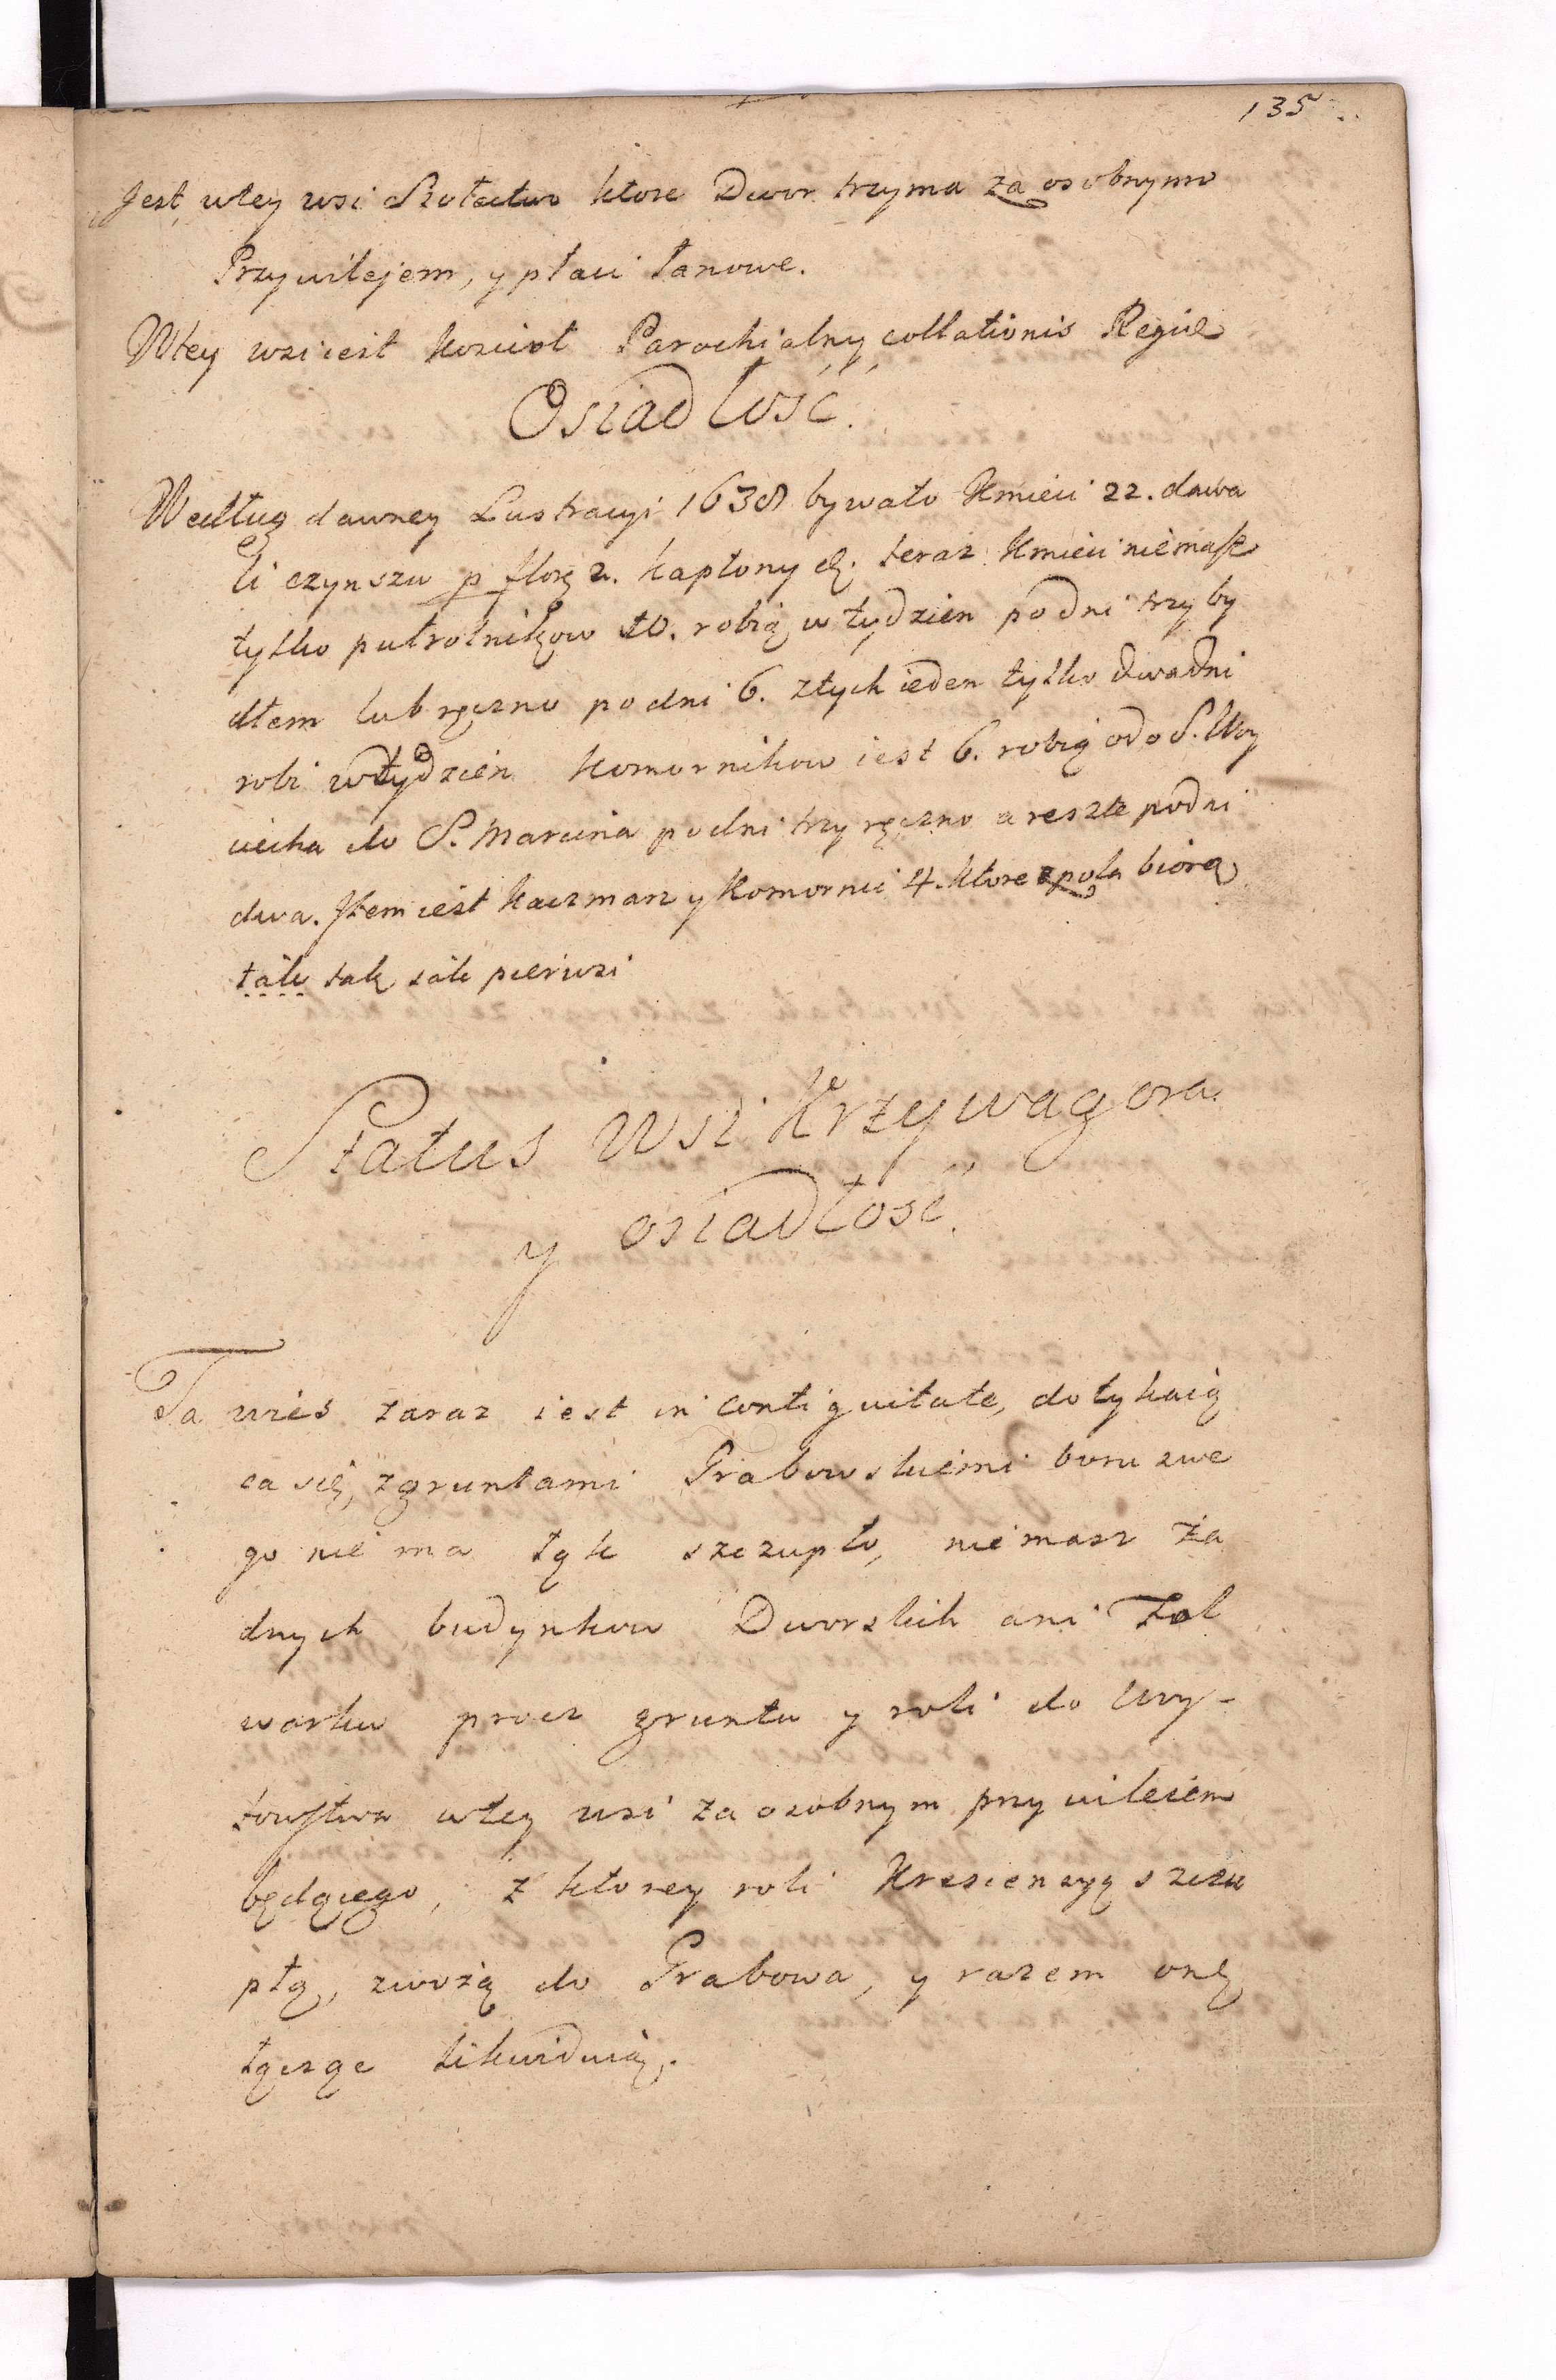 135
Jest wtey wsi Sołectwo ktore Dwor trzyma za osobnym
Przywilejem, y płaci łanowe.
Wtey wsi iest kosciol Parochialny collationis Regiæ
Osiadłość.
Według dawney Lustracyi 1638 bywało Kmieci 22. dawa
li czynszu p flor 2. kapłony 2. teraz Kmieci niemasz
tylko pułrolnikow 10. robią w tydzien po dni trzy by
dłem lub ręczno po dni 6. z tych ieden tylko dwa dni
robi w tydzien Komornikow iest 6. robią od S. Woy
ciecha do S. Marcina po dni trzy ręczno a reszte po dni
dwa. Item iest Kaczmarz y Komornic 4. ktore z pola biorą
tak pierwsi
Status Wsi Krzywagora
y osiadłosć.
Ta wies zaraz iest in contiguitate, dotykaią
ca się, zgruntami Grabowskiemi boru swe
go nie ma łąk szczupło, niemasz ża
dnych budynkow Dworskich ani Fol
warku procz gruntu y roli do Wy-
towstwa wtey wsi za osobnym przywileiem
będącego, z ktorey roli Krescencyą szczu
płą, zwożą do Grabowa, y razem onę
łącząc likwiduią.